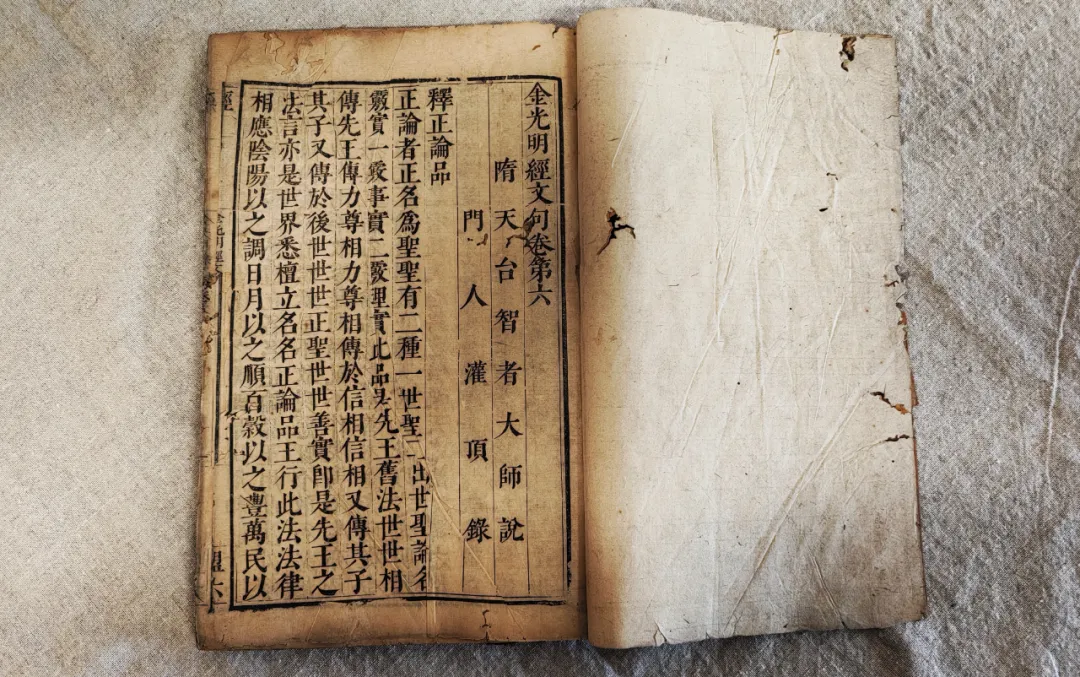 金光明經文句卷第六
隋天台智者大師說
門人灌頂錄
釋正論品
正論者正名爲聖聖有二種一世聖二出世聖論名
覈實一覈事實二覈理實此品是先王舊法世世相
傳先王傳力尊相力尊相傳於信相信相又傳其子
其子又傳於後世世世正聖世世善實卽是先王之
法言亦是世界悉檀立名名正論品王行此法法律
相應陰陽以之調日月以之順百穀以之豐萬民以